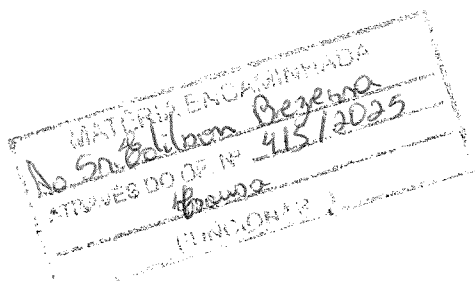 MATÉRIA ENCAMINHADA
Ao Sr. Edilson Bezerra
ATRAVÉS DO OF. Nº 415/2025
FUNCIONÁRIO